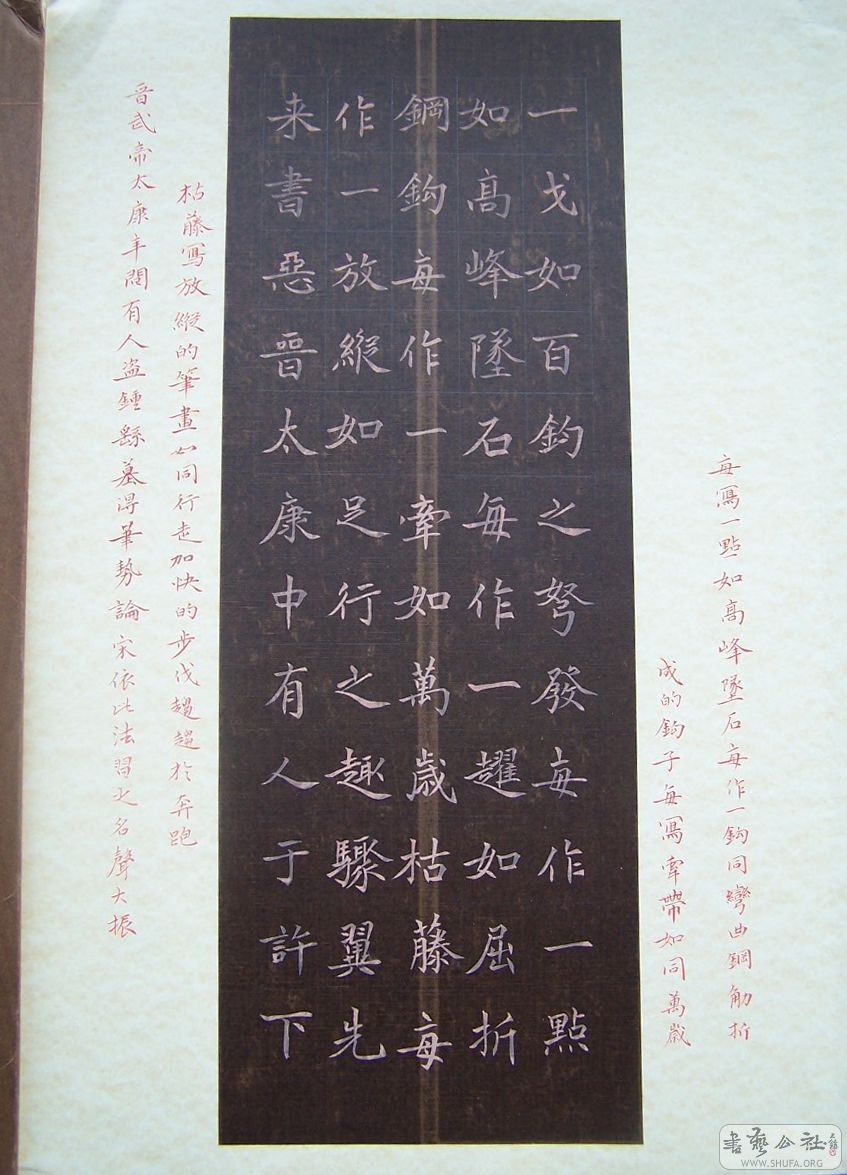 每寫一點如高峰墜石每作一鈎同彎曲鋼觔折
成的鈎子每寫牽帶如同萬歲
一戈如百鈞之弩發每作一點
如高峰墜石每作一趯如屈折
鋼鈎每作一牽如萬歲枯藤每
作一放縱如足行之趣驟翼先
来書惡晉太康中有人于許下
枯藤寫放縱的筆畫如同行走加快的步伐趨於奔跑
晋武帝太康年間有人盗鍾繇墓得筆勢論宋依此法習之名聲大振
書藝公社
WWW.SHUFA.ORG